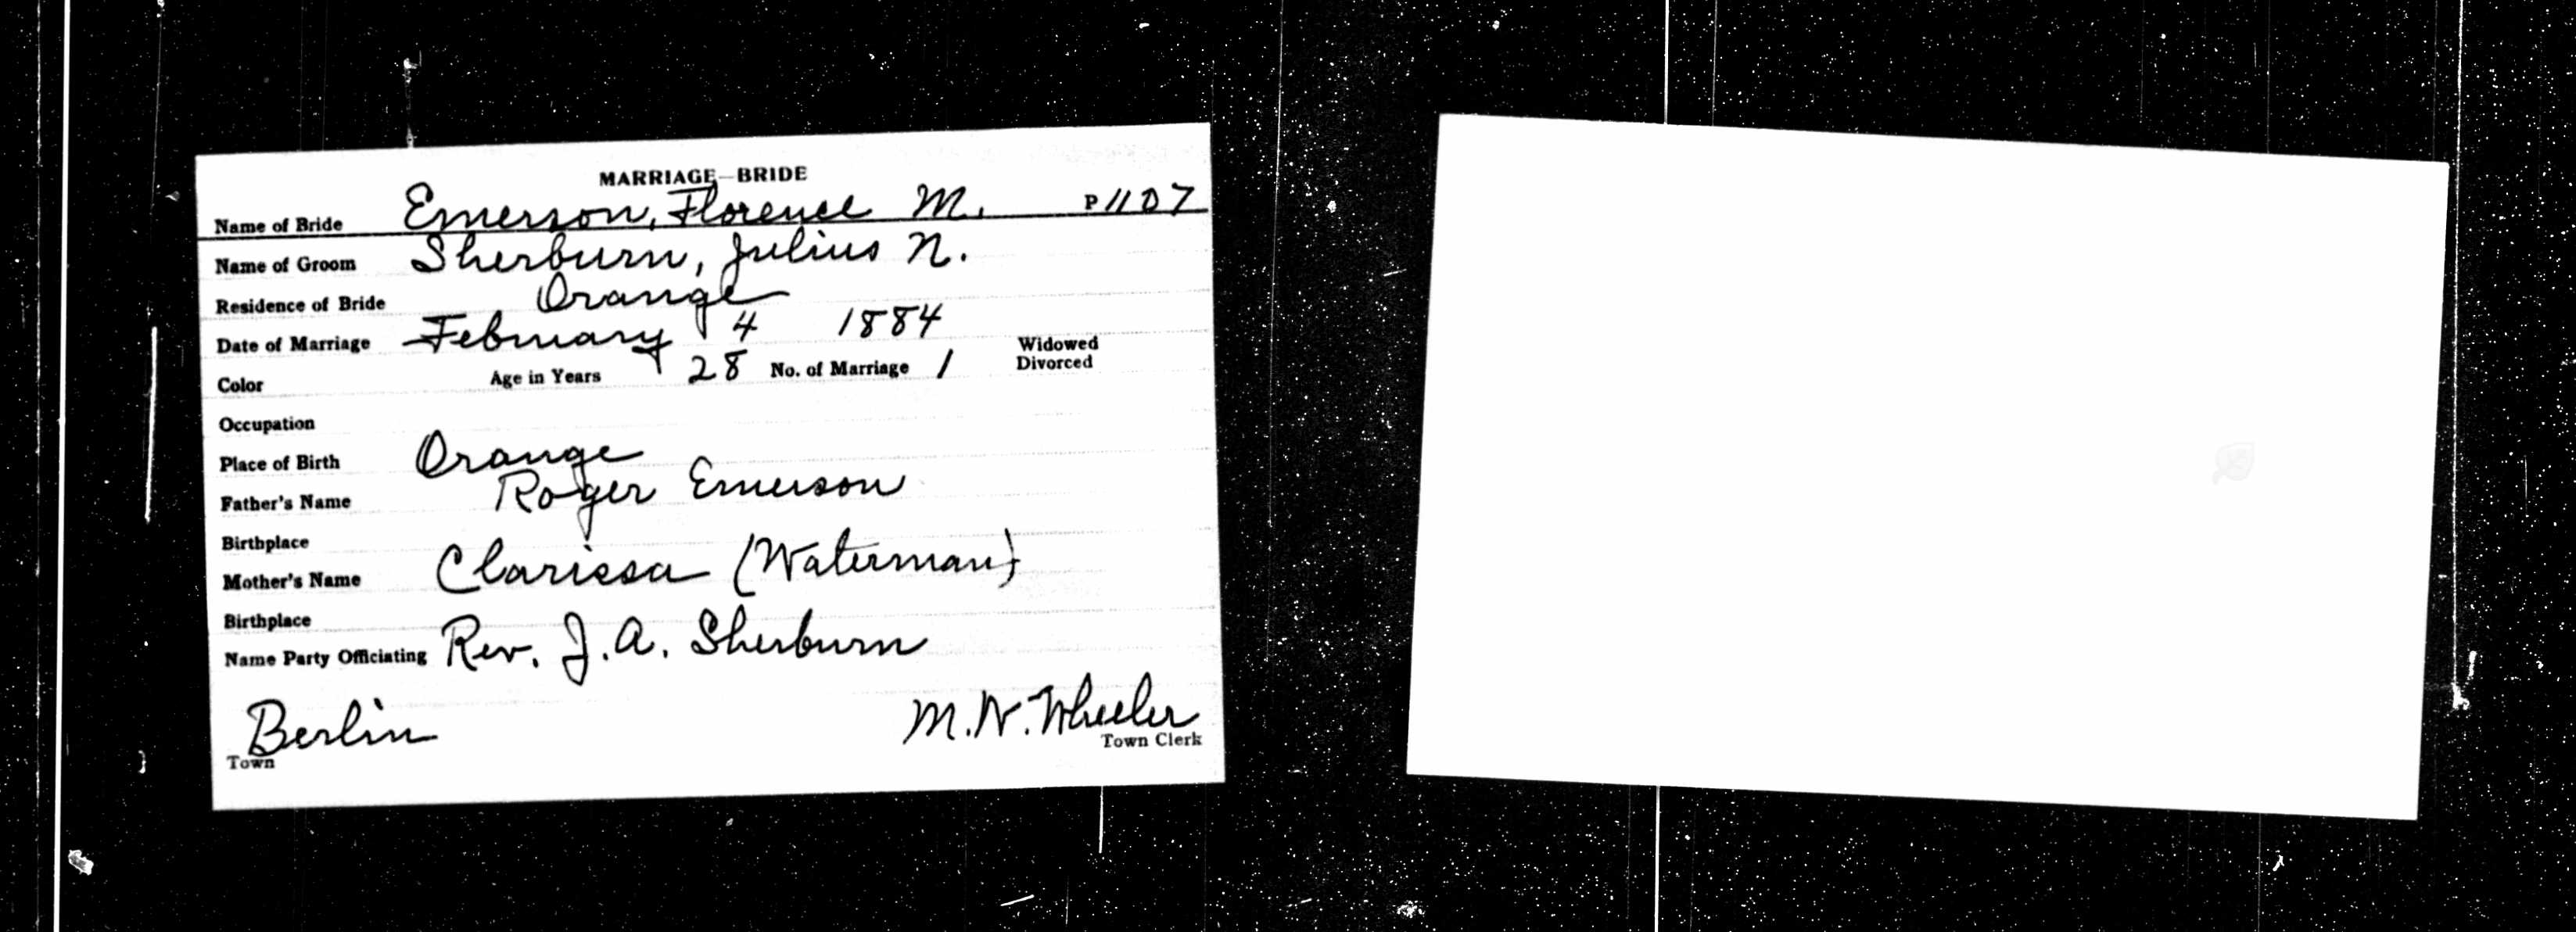 MARRIAGE—BRIDE
Name of Bride Emerson, Florence M. P 1107
Name of Groom Sherburn, Julius N.
Residence of Bride Orange
Date of Marriage February 4 1884 Widowed
Color Age in Years 28 No. of Marriage 1 Divorced
Occupation
Place of Birth Orange
Father's Name Roger Emerson
Birthplace
Mother's Name Clarissa (Waterman)
Birthplace
Name Party Officiating Rev. J. A. Sherburn
Berlin M. N. Wheeler
Town Town Clerk